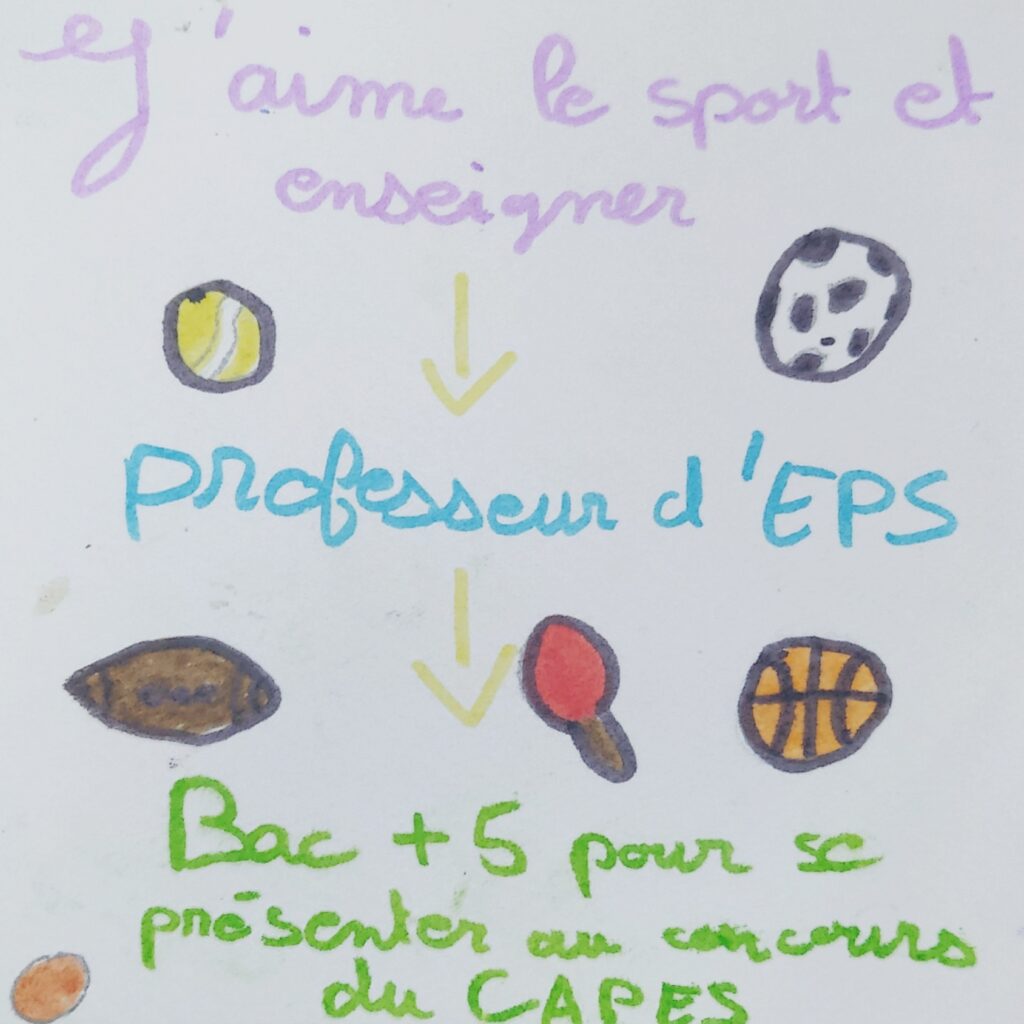 J'aime le sport et
enseigner
professeur d'EPS
Bac + 5 pour se
présenter au concours
du CAPES